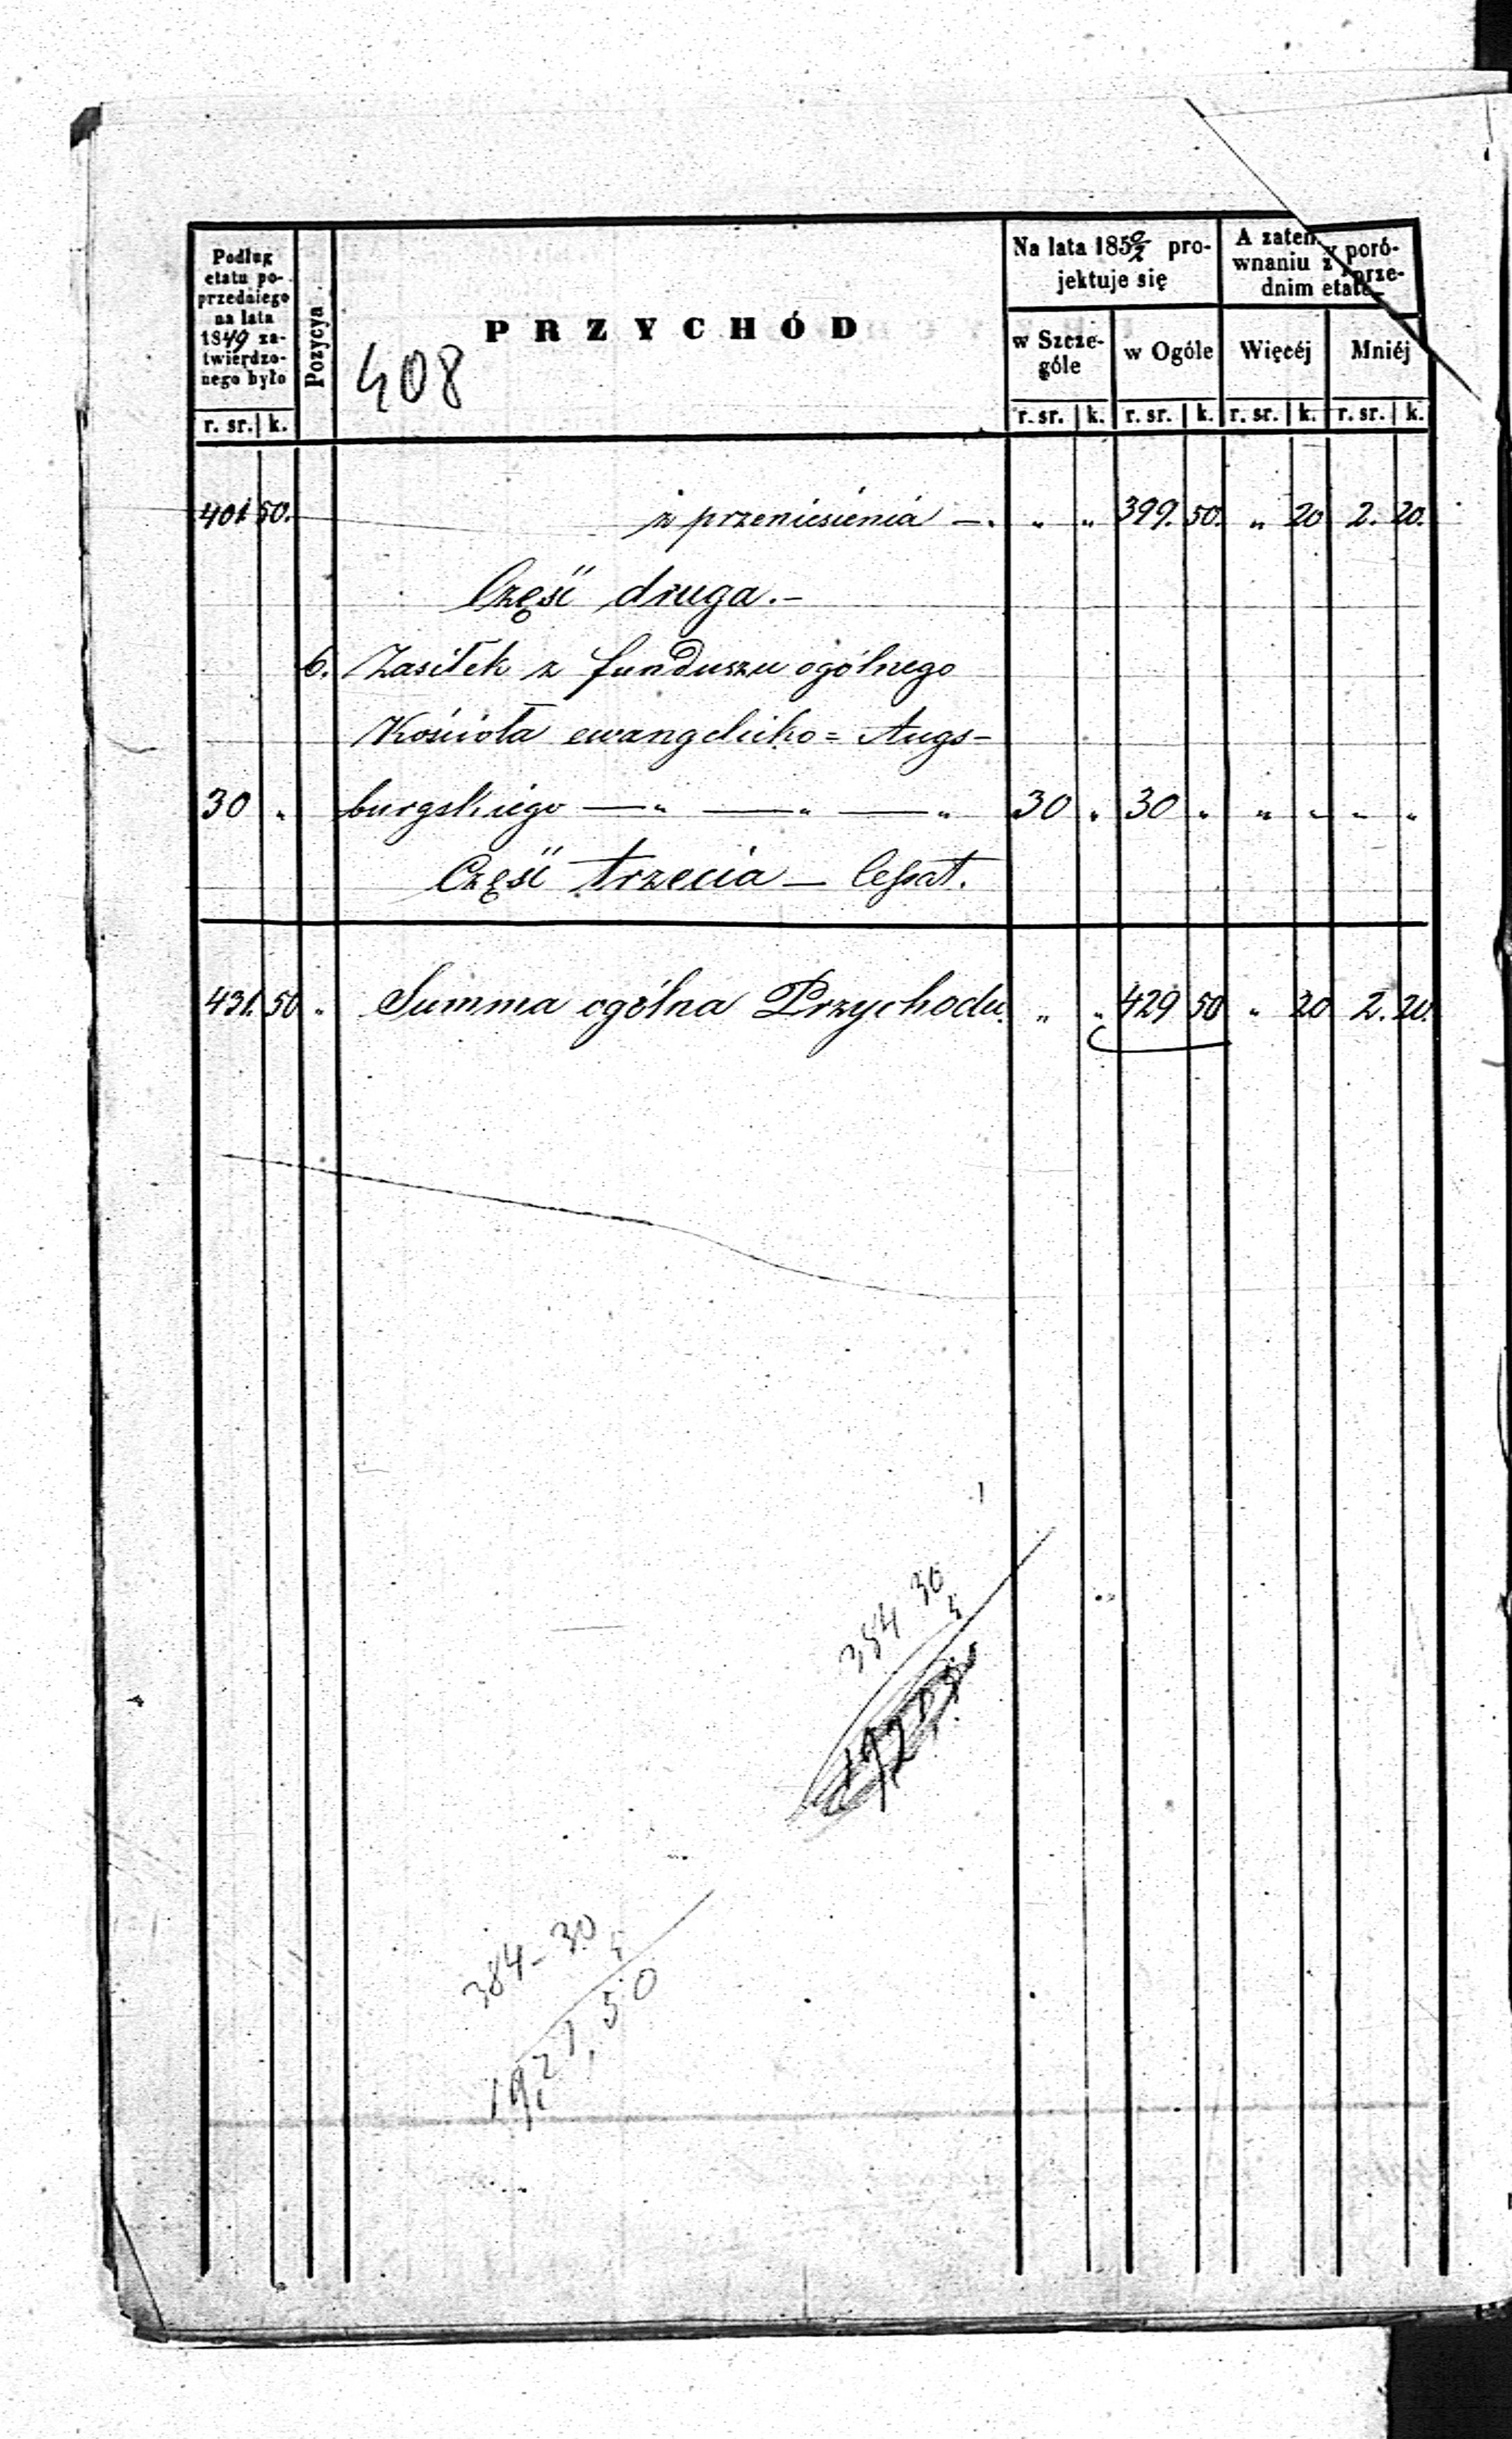 Podług
etatu po-
przedniego
na lata
1849 za-
twiérdzo-
nego było
r. sr. k.
Pozycya
PRZYCHÓD
408
Na lata 185 0/2 pro-
jektuje się
w Szcze-
góle
r. sr. k.
w Ogóle
r. sr. k.
A zatem poró-
wnaniu z
dnim
Więcéj
r. sr. k.
Mniéj
r. sr. k.
401 50. z przeniesienia —. „ „ 399. 50. „ 20 2. 20.
Część druga.—
6. Zasiłek z funduszu ogólnego
Kościoła ewangelicko= Augs-
30 „ burgskiego —„ —„ —„ 30 „ 30 „ „ „ „ „
Część trzecia — Cessat.
431. 50 „ Summa ogólna Przychodu. „ „ 429 50 „ 20 2. 20.
384 30
384-30
1921,50